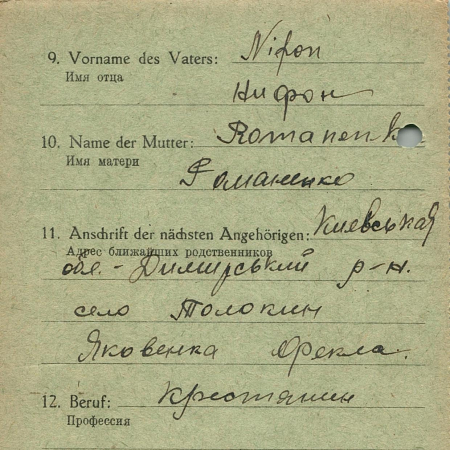 9. Vorname des Vaters: Nifon
Имя отца
Нифон
10. Name der Mutter: Romanenk
Имя матери
Романенко
11. Anschrift der nächsten Angehörigen: Киевськая
Адрес ближайших родственников
обл.- Димирський р-н.
село Толокин
Яковенка Фекла.
12. Beruf: крестянин
Профессия